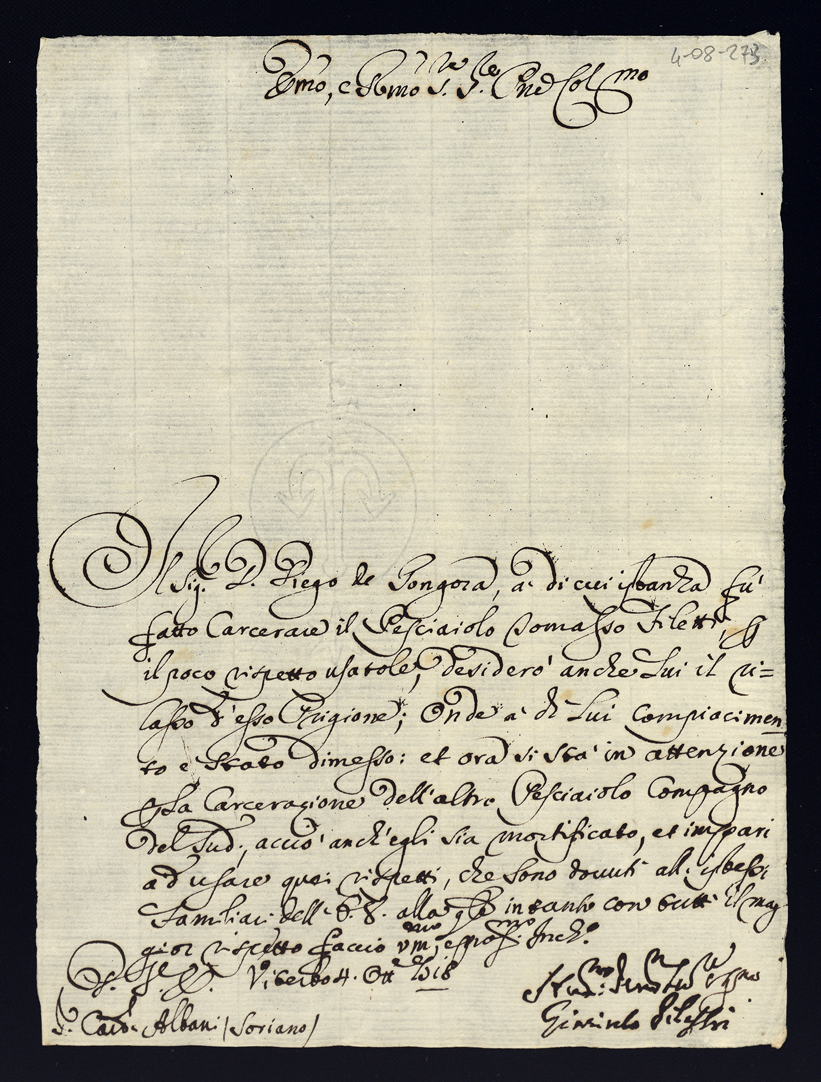 4-08-273
Emo, e Rmo S.re S.re Pne Colmo
Il Sig. D. Diego de Gongora, a' di cui istanza fu'
fatto Carcerare il Pesciaiolo Tomasso Filetti, p
il poco rispetto usatole, desiderò anche Lui il ri=
lasso d'esso Prigione; Onde a' di Lui Compiacimen
to e' stato dimesso: et ora si stà in attenzione
p la Carcerazione dell'altro Pesciaiolo Compagno
del Sud., acciò anch'egli sia mortificato, et impari
ad usare quei rispetti, che sono dovuti all. istessi
familiari dell' E. V. alla qle intanto con tutt. il mag
gior rispetto faccio umma, e profma Inchº.
D. V. E. Viterbo 4. Ott.e 1718
S. Card. Albani (Soriano)
Giacinto